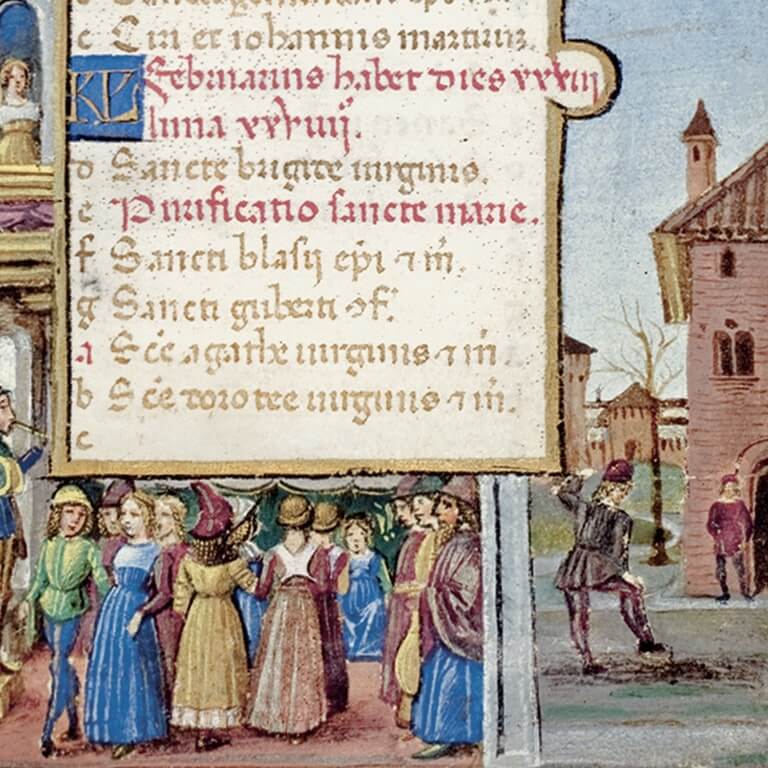 c Ciri et iohannis martirum
KL Februarius habet dies xxviij
luna xxviiij.
d Sancte brigite uirginis.
e Purificatio sancte marie.
f Sancti blasij epi ⁊ m̃.
g Sancti guberti ɔf.
a Sc̃e agathe uirginis ⁊ m̃
b Sc̃e dorotee uirginis ⁊ m̃.
c